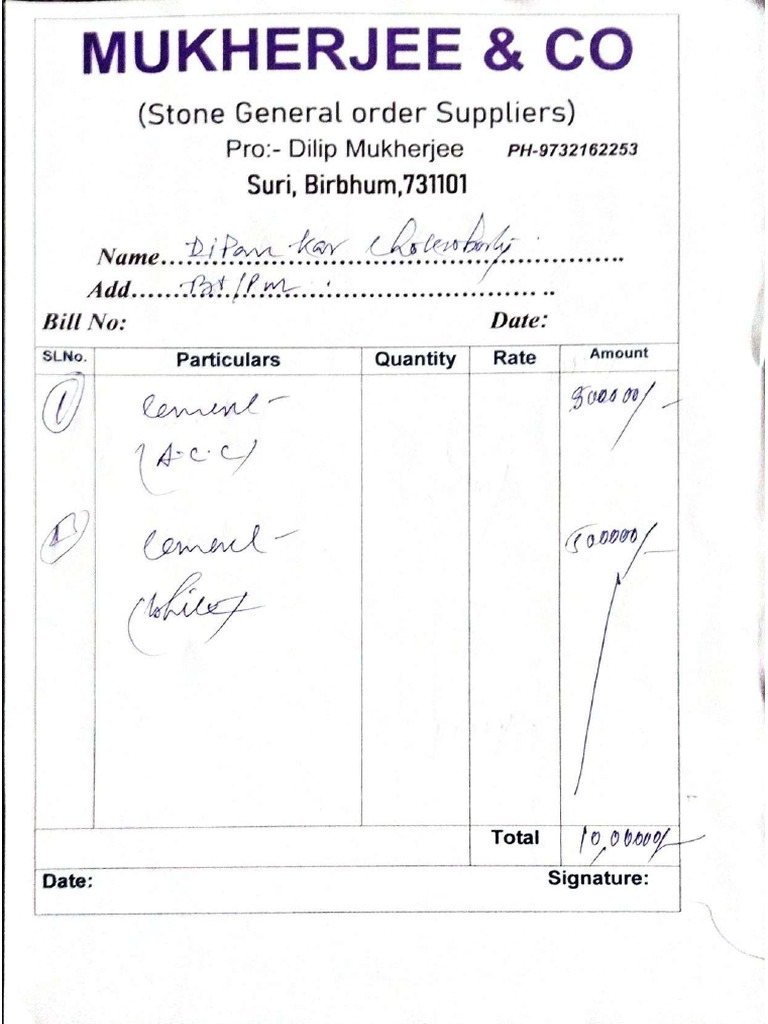 MUKHERJEE & CO
(Stone General order Suppliers)
Pro:- Dilip Mukherjee PH-9732162253
Suri, Birbhum,731101
Name......Dipan kar
Add......
Bill No: Date:
SLNo. Particulars Quantity Rate Amount
1 Cement- 500000/-
(A.C.C)
2 Cement- 500000/-
(White)
Total 10,00000/-
Date: Signature: